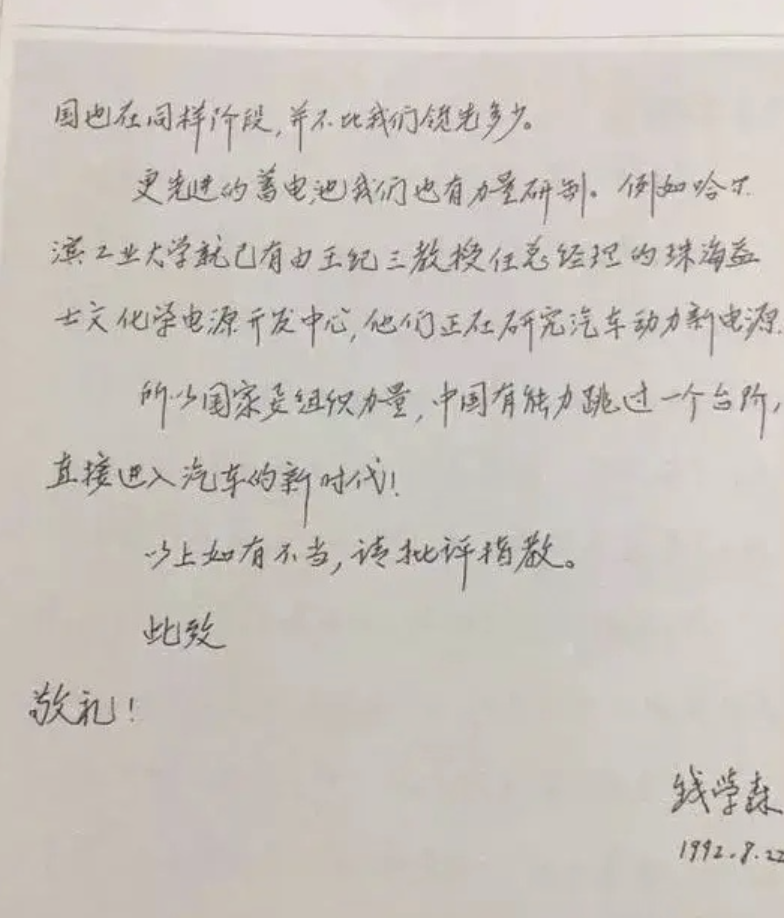 国也在同样阶段,并不比我们领先多少。
更先进的蓄电池我们也有力量研制。例如哈尔
滨工业大学就已有由王纪三教授任总经理的珠海益
士文化学电源开发中心,他们正在研究汽车动力新电源.
所以国家要组织力量,中国有能力跳过一个台阶,
直接进入汽车的新时代!
以上如有不当,请批评指教。
此致
敬礼!
钱学森
1992.8.22